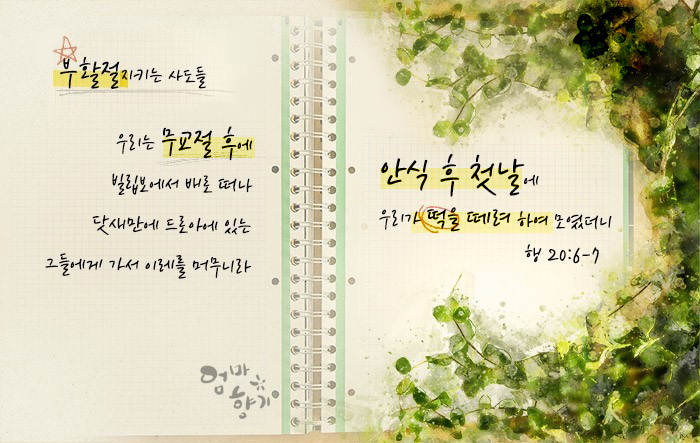 부활절 지키는 사도들
우리는 무교절 후에
빌립보에서 배로 떠나
닷새만에 드로아에 있는
그들에게 가서 이레를 머무니라
엄마
향기
안식 후 첫날에
우리가 떡을 떼려 하여 모였더니
행 20:6-7